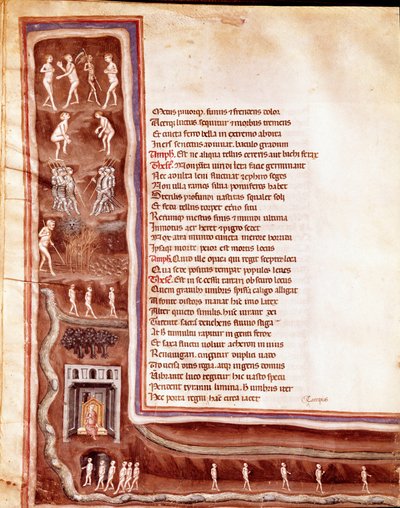 Metus pauorq; funus et frendens dolor
Aterq; luctus sequitur et morbus tremens
Et cincta ferro bella in extremo abdita
Iners senectus adiuuat baculo gradum
Amph. Est ne aliqua tellus cereris aut bachi ferax
Thes. Non prata uiridi leta facie germinant
Nec adulta leni fluctuat zephyro seges
Non ulla ramos silua pomiferos habet
Sterilis profundi uastitas squalet soli
Et feda tellus torpet eterno situ
Rerumq; mestus finis et mundi ultima
Inmotus aer heret et pigro sedet
Nox atra mundo cuncta merore horrida
Ipsaq; morte peior est mortis locus
Amph. Quid ille opaca qui regit sceptro loca
Qua sede positus temperat populos leues
Thes. Est in recessu tartari obscuro locus
Quem grauibus umbris spissa caligo alligat
A fonte discors manat hinc uno latex
Alter quieto similis hunc iurant dei
Tacente sacram deuehens fluuio stiga
At hic tumultu rapitur ingenti ferox
Et saxa fluctu uoluit acheron inuius
Renauigari cingitur duplici uado
Aduersa ditis regia atq; ingens domus
Umbrante luco tegitur hic uasto specu
Pendent tyranni limina hoc umbris iter
Hec porta regni hanc circa iacet
Campus